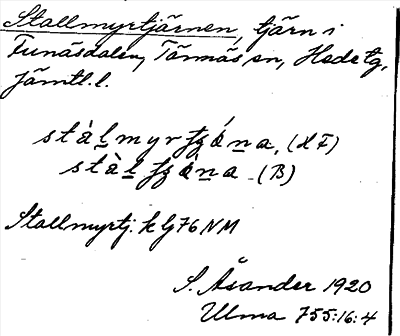 Stallmyrtjärnen, tjärn i
Funäsdalen, Tännäs sn, Hede tg,
Jämtl. l.
stàlmyrtʃǽna, (XF)
stàltʃǽna (B)
Stallmyrtj. k lj 76 NM
S. Åsander 1920
Ulma 755:16:4